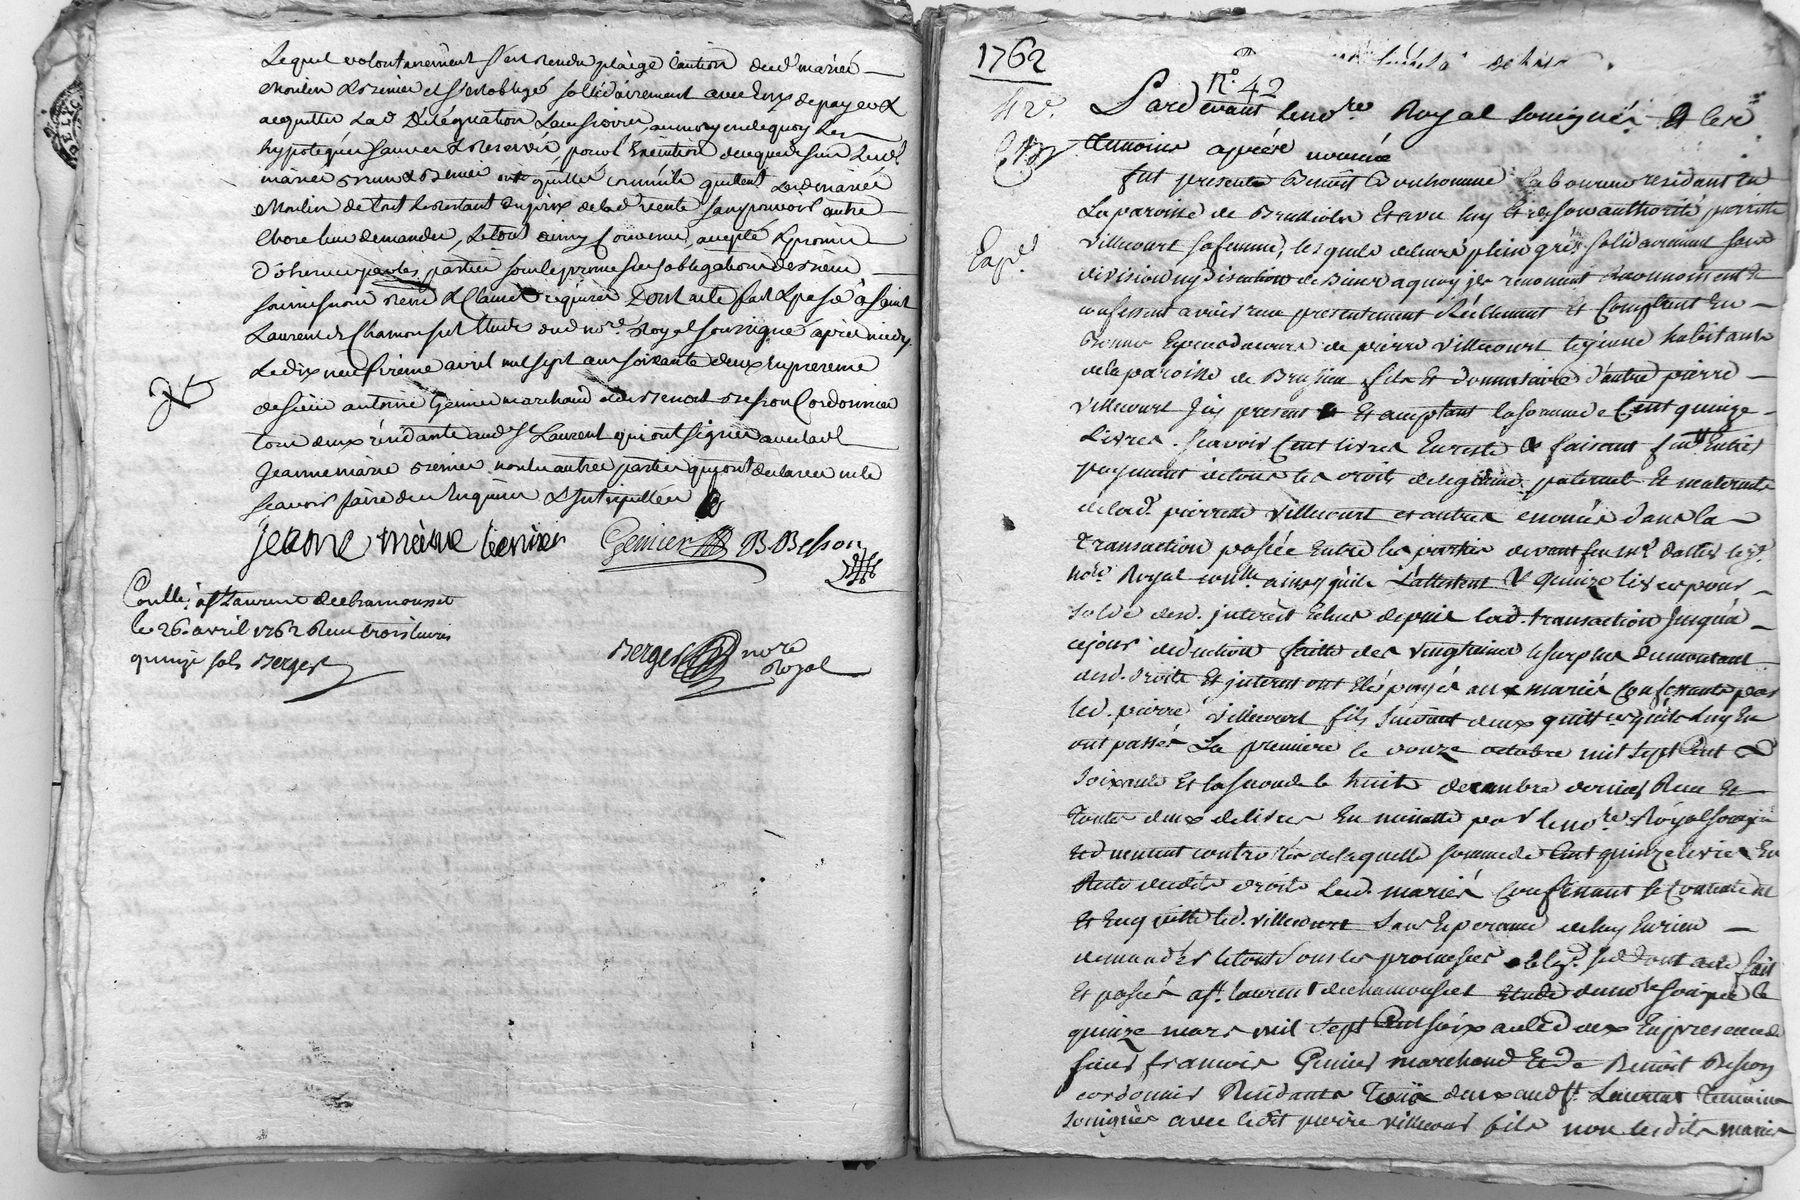 Lequel volontairement s'est rendu pleige caution desd. mariés
Moulin & Grenier et s'est obligé solidairement avec eux de payer &
acquitter lad. Délégation
hypotéquer sauver & réserver, pour l'exécution
mariés
Moulin de tout le restant du prix de lad. vente sans pouvoir autre
Chose luy demander, le tout ainsy convenu, accepté & promis
D'observer par les parties sous les promesses obligations de biens
soumissions renon & Clauses requises Dont acte fait & passé à Saint
Laurent de Chamousset Etude dud. nore. Royal soussigné après midy
Le dix neufvieme avril mil sept cens soixante deux En presence
de sieur antoine Genier marchand & de Benoit Besson Cordonnier
tous deux résidants aud. St Laurent qui ont signé avec lad.
Jeanne marie Grenier non les autres parties qui ont declaré ne le
scavoir faire de ce Enquis & Interpellés
jeanne marie Grenier Genier B. Besson
Conllé. à St Laurent de chamousset
le 26. avril 1762 Receu trois livres
quinze sols Berger
Berger nore
Royal
1762
No. 42
Pardevant le no.re Royal soussigné & les
temoins après nommés
fut présente Benoit Bonhomme laboureur résidant En
La paroisse de Brullioles Et avec luy Et de son authorité pierrette
Villecourt sa femme, lesquels de leur plein gré solidairement sans
division ny discution de Biens a quoy ils renoncent reconnoissent &
confessent avoir receu presentement Réellement et Comptant En
Bonnes Especes de cours de pierre Villecourt le jeune habitant
Exp.é
de la paroisse de Brussieu fils Et donnataire d'autre pierre
Villecourt Icy present Et acceptant la somme de Cent quinze
Livres. Scavoir Cent livres En reste & faisant fin & Entier
payement de tous les droits de legitime paternels Et maternels
de lad. pierrette Villecourt et autres enoncés dans la
Transaction passée Entre les parties devant feu Me.
no.re Royal ainsy qu'ils l'attestent & quinze livres pour
solde des d. interets Echus depuis lad. transaction Jusqu'a
ce jour deduction faitte des vingtiemes le surplus du montant
desd. droits Et interets ont Eté payés aux mariés Confessants par
led. pierre Villecourt fils suivant deux quittances qu'ils luy En
ont passés La premiere le onze octobre mil sept Cent
soixante Et la seconde le huit decembre dernier Receu Et
Toutes deux delivrés En minutte par le no.re Royal soussigné
& duement controlés de laquelle somme de Cent quinze livres En
Reste desdits droits Lesd. mariés Confessent se Contenter
Et En quitte led. Villecourt Sans Esperance de luy En rien
demander le tout sous les promesses oblig. Dont acte fait
Et passé a St. laurent de chamousset Etude du no.re soussigné le
quinze mars mil sept Cent soixante deux En presence de
sieur francois Genier marchand Et de Benoit Besson
cordonnier Residants Tous deux aud. St. Laurent Temoins
soussignés avec ledit pierre Villecourt fils non lesdits mariés